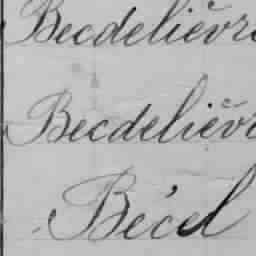 Becdelièvre
Becdelièvre
Bécel